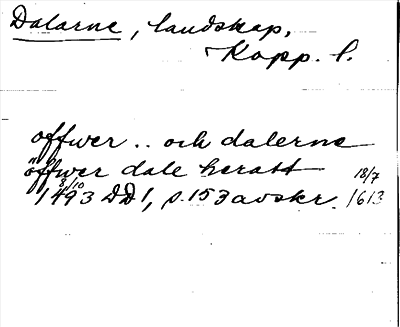 Dalarne, landskap,
Kopp. l.
offwer .. och dalerne
öffwer dale heratt 18/7
3/10
1493 DD1, s. 153 avskr. 1613